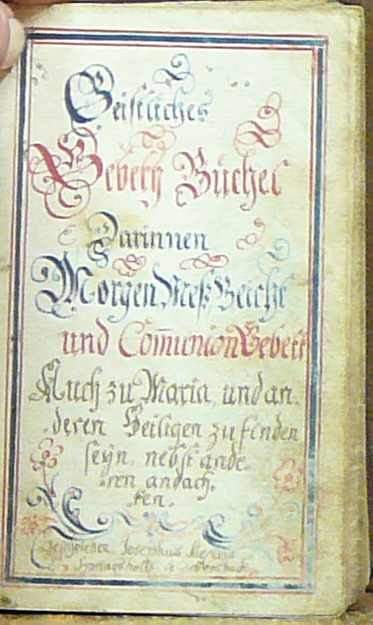 Geistliches
Gebeth Büchel
Darinnen
Morgen Meß Beicht
und Com̄union Gebett
Auch zu Maria, und an-
deren Heiligen zu finden
seyn, nebst ande-
ren andach-
ten.
Josephus